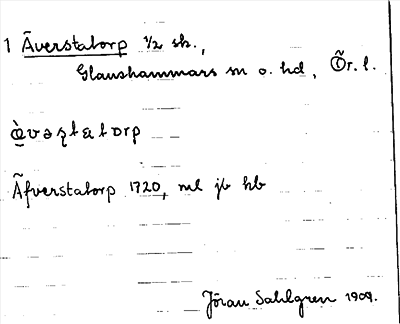 1 Äverstatorp 1/2 sk.,
Glanshammars sn o. hd, Ör. l.
Äfverstatorp 1720, ml jb hb
Jöran Sahlgren 1909.